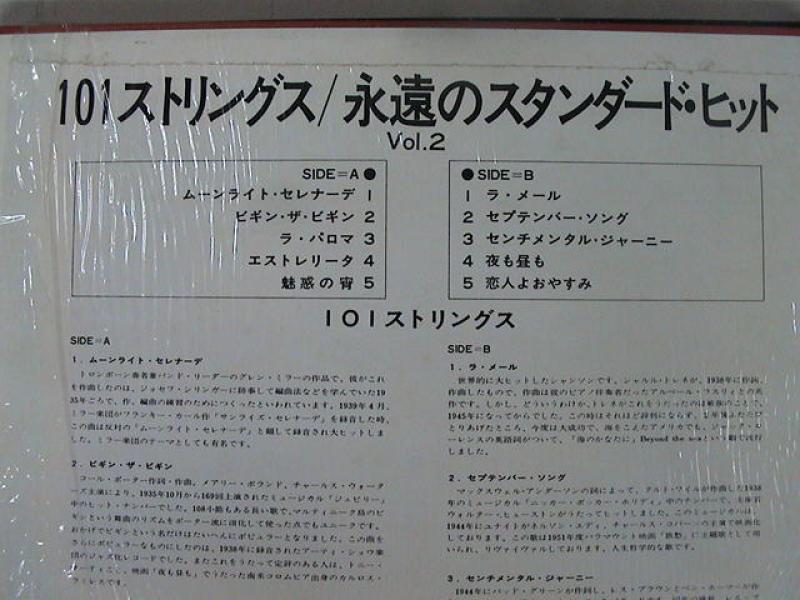 101ストリングス/永遠のスタンダード・ヒット
Vol.2
SIDE=A ●
ムーンライト・セレナーデ 1
ビギン・ザ・ビギン 2
ラ・パロマ 3
エストレリータ 4
魅惑の宵 5
● SIDE=B
1 ラ・メール
2 セプテンバー・ソング
3 センチメンタル・ジャーニー
4 夜も昼も
5 恋人よおやすみ
101ストリングス
SIDE=A
1. ムーンライト・セレナーデ
トロンボーン奏者兼バンド・リーダーのグレン・ミラーの作品で、彼がこれ
を作曲したのは、ジョセフ・シリンガーに師事して編曲法などを学んでいた19
35年ごろで、作、編曲の練習のためにつくったといわれています。1939年4月、
ミラー楽団がフランキー・カール作「サンライズ・セレナーデ」を録音した時、
この曲は反対の「ムーンライト・セレナーデ」と題して録音され大ヒットしま
した。ミラー楽団のテーマとしても有名です。
2. ビギン・ザ・ビギン
コール・ポーター作詞・作曲。メアリー・ボランド、チャールス・ウォータ
ーズ主演により、1935年10月から169回上演されたミュージカル「ジュビリー」
中のヒット・ナンバーでした。108小節もある長い歌で、マルティニーク島のビ
ギンという舞曲のリズムをポーター流に消化して使った点でもユニークです。
おかげでビギンという名だけはたいへんにポピュラーとなりました。この曲を
さらにポピュラーなものにしたのは、1938年に録音されたアーティ・ショウ楽
団のジャズ化レコードでした。またこれをうたって定評のある人は、トニー・
映画「夜も昼も」でうたった南米コロムビア出身のカルロス・
ラミレスです。
SIDE=B
1. ラ・メール
世界的に大ヒットしたシャンソンです。シャルル・トレネが、1938年に作詞、
作曲したもので、作曲は彼のピアノ伴奏者だったアルベール・ラスリィとの共
作です。しかし、どういうわけか、トレネがこれをうたったのは
1945年になってからでした。この時はそれほど評判にならず、
とりあげたところ、今度は大成功で、海をこえたアメリカでも、ジャック・ロ
ーレンスの英語詞がついて、「海のかなたに」Beyond the seaという題で流行
しました。
2. セプテンバー・ソング
マックスウェル・アンダーソンの詞によって、クルト・ワイルが作曲した1938
年のミュージカル「ニッカー・ボッカー・ホリディ」中のナンバーで、主演者
ウォルター・ヒューストンがうたってヒットしました。このミュージカルは、
1944年にユナイトがネルソン・エディ、チャールス・コバーンの主演で映画化
しております。この歌は1951年度パラマウント映画「旅愁」に主題歌として用
いられ、リヴァイヴァルしております。人生哲学的な歌です。
3. センチメンタル・ジャーニー
1944年にバッド・グリーンが作詞し、トス・ブラウンとベン・ホーマーが作